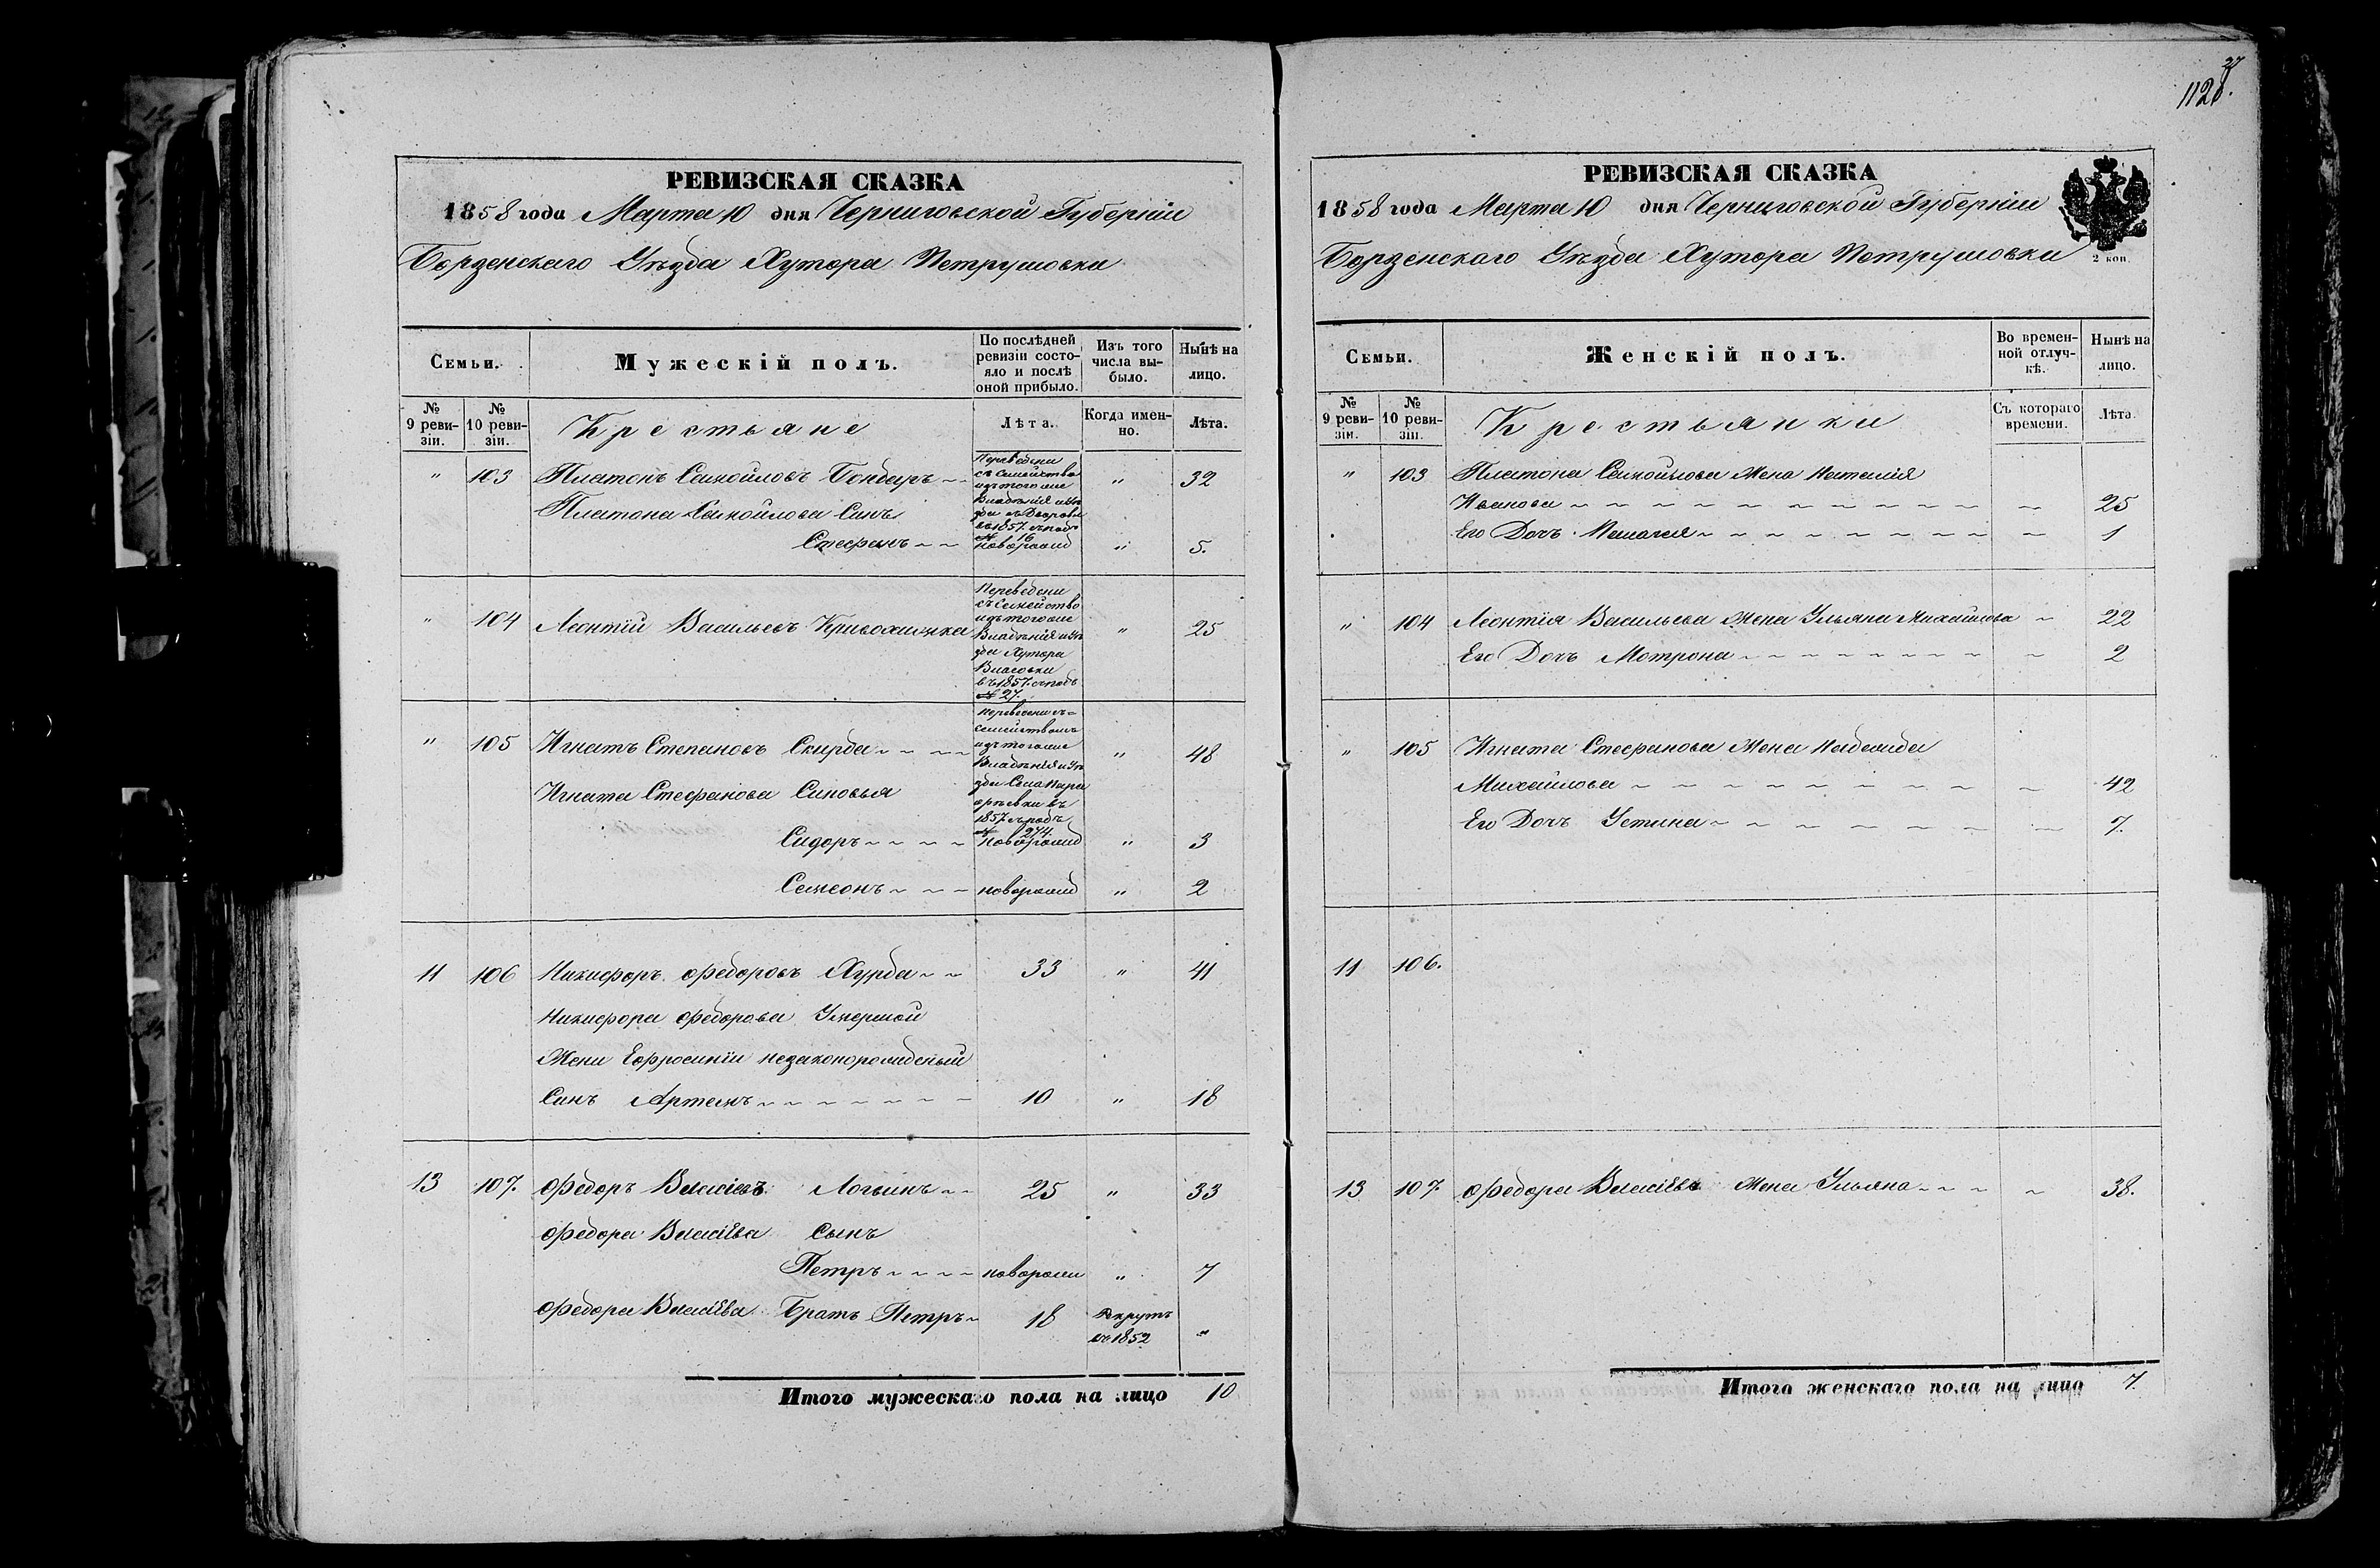 РЕВИЗСКАЯ СКАЗКА
1858 года Марта 10 дня Черниговской Губерніи
Борзенскаго Уѣзда Хутора Петрушовки
Семьи.
Мужескій полъ.
По послѣдней ревизіи состояло и послѣ оной прибыло.
Изъ того числа выбыло.
Нынѣ на лицо.
№ 9 ревизіи.
№ 10 ревизіи.
Крестьяне
Лѣта.
Когда именно.
Лѣта.
" 103 Платонъ Самойловъ Бондаръ " 32
Переведени
съ Семейство
изъ того же
Владѣнія и Уѣ
зда
въ 1857. съ подъ
№ 16
Платона Самойлова Синъ
Стефанъ новорожд " 5.
" 104 Леонтій Васильевъ " 25
Переведени
съ Семейство
изъ того же
Владѣнія и Уѣ
зда Хутора
Власовки
въ 1857. съ подъ
№ 27.
" 105 Игнатъ Степановъ Скирда " 48
Переведени съ
семействомъ
изъ того же
Владѣнія и Уѣ
зда Села
въ
1857. съ подъ
№ 274
Игната Стефанова Синовья
Сидоръ новорожд " 3
Семеонъ новорожд " 2
11 106 Никифоръ Федоровъ Хурда 33 " 41
Никифора Федорова Умершой
Жени Ефросиніи незаконорожденый
Синъ Артемъ 10 " 18
13 107. Федоръ Власіевъ Логвинъ 25 " 33
Федора Власіева Сынъ
Петръ новорож " 7
Федора Власіева Братъ Петръ 18 Рекрутъ въ 1852 "
Итого мужескаго пола на лицо 10
27
1128.
РЕВИЗСКАЯ СКАЗКА
1858 года Марта 10 дня Черниговской Губерніи
Борзенскаго Уѣзда Хутора Петрушовки
2 коп.
Семьи.
Женскій полъ.
Во временной отлучкѣ.
Нынѣ на лицо.
№ 9 ревизіи.
№ 10 ревизіи.
Крестьянки
Съ котораго времени.
Лѣта.
" 103 Платона Самойлова Жена Наталія
Иванова 25
Его Дочъ Пелагея 1
" 104 Леонтія Васильева Жена Ульяна Михайлова 22
Его Дочъ Мотрона 2
" 105 Игната Стефанова Жена
Михайлова 42
Его Дочъ Устина 7.
11 106.
13 107. Федора Власіева Жена Ульяна 38.
Итого женскаго пола на лицо 7.